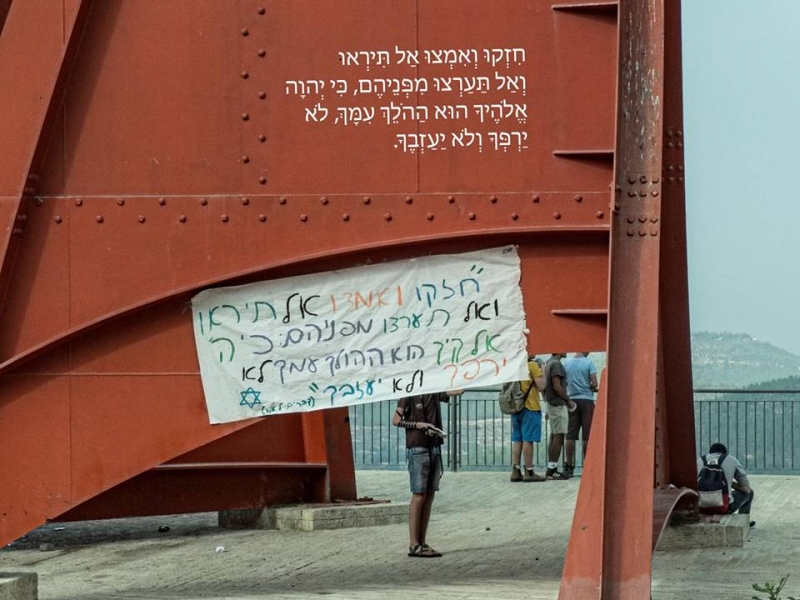 חִזְקוּ וְאִמְצוּ אַל תִּירְאוּ
וְאַל תַּעַרְצוּ מִפְּנֵיהֶם, כִּי יְהוָה
אֱלֹהֶיךָ הוּא הַהֹלֵךְ עִמָּךְ, לֹא
יַרְפְּךָ וְלֹא יַעַזְבֶךָּ.
"חזקו ואמצו אל תיראו
ואל תערצו מפניהם: כי ה'
אלקיך הוא ההולך עמך לא
ירפך ולא יעזבך"